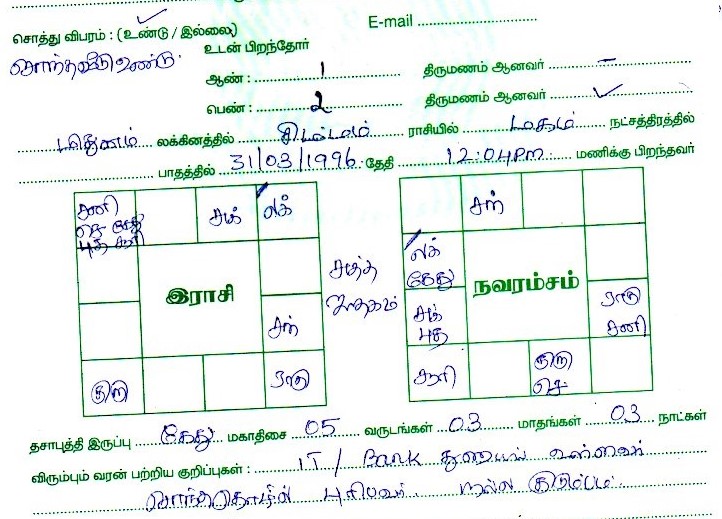 E-mail
சொத்து விபரம் : (உண்டு / இல்லை)
சொந்தவீடு உண்டு.
உடன் பிறந்தோர்
ஆண் : 1 திருமணம் ஆனவர் –
பெண் : 2 திருமணம் ஆனவர் ✓
மிதுனம் லக்கினத்தில் சிம்மம் ராசியில் மகம் நட்சத்திரத்தில்
பாதத்தில் 31/03/1996 தேதி 12:04PM மணிக்கு பிறந்தவர்
சனி
செ கேது
புத சூரி
சுக்
லக்
இராசி
சந்
குரு
ராகு
சுத்த
ஜாதகம்
சந்
லக்
கேது
நவரம்சம்
ராகு
சனி
சுக்
புத
சூரி
குரு
செ
தசாபுத்தி இருப்பு கேது மகாதிசை 05 வருடங்கள் 03 மாதங்கள் 03 நாட்கள்
விரும்பும் வரன் பற்றிய குறிப்புகள் : IT / Bank துறையில் உள்ளவர்
சொந்ததொழில் புரிபவர். நல்ல குடும்பம்.